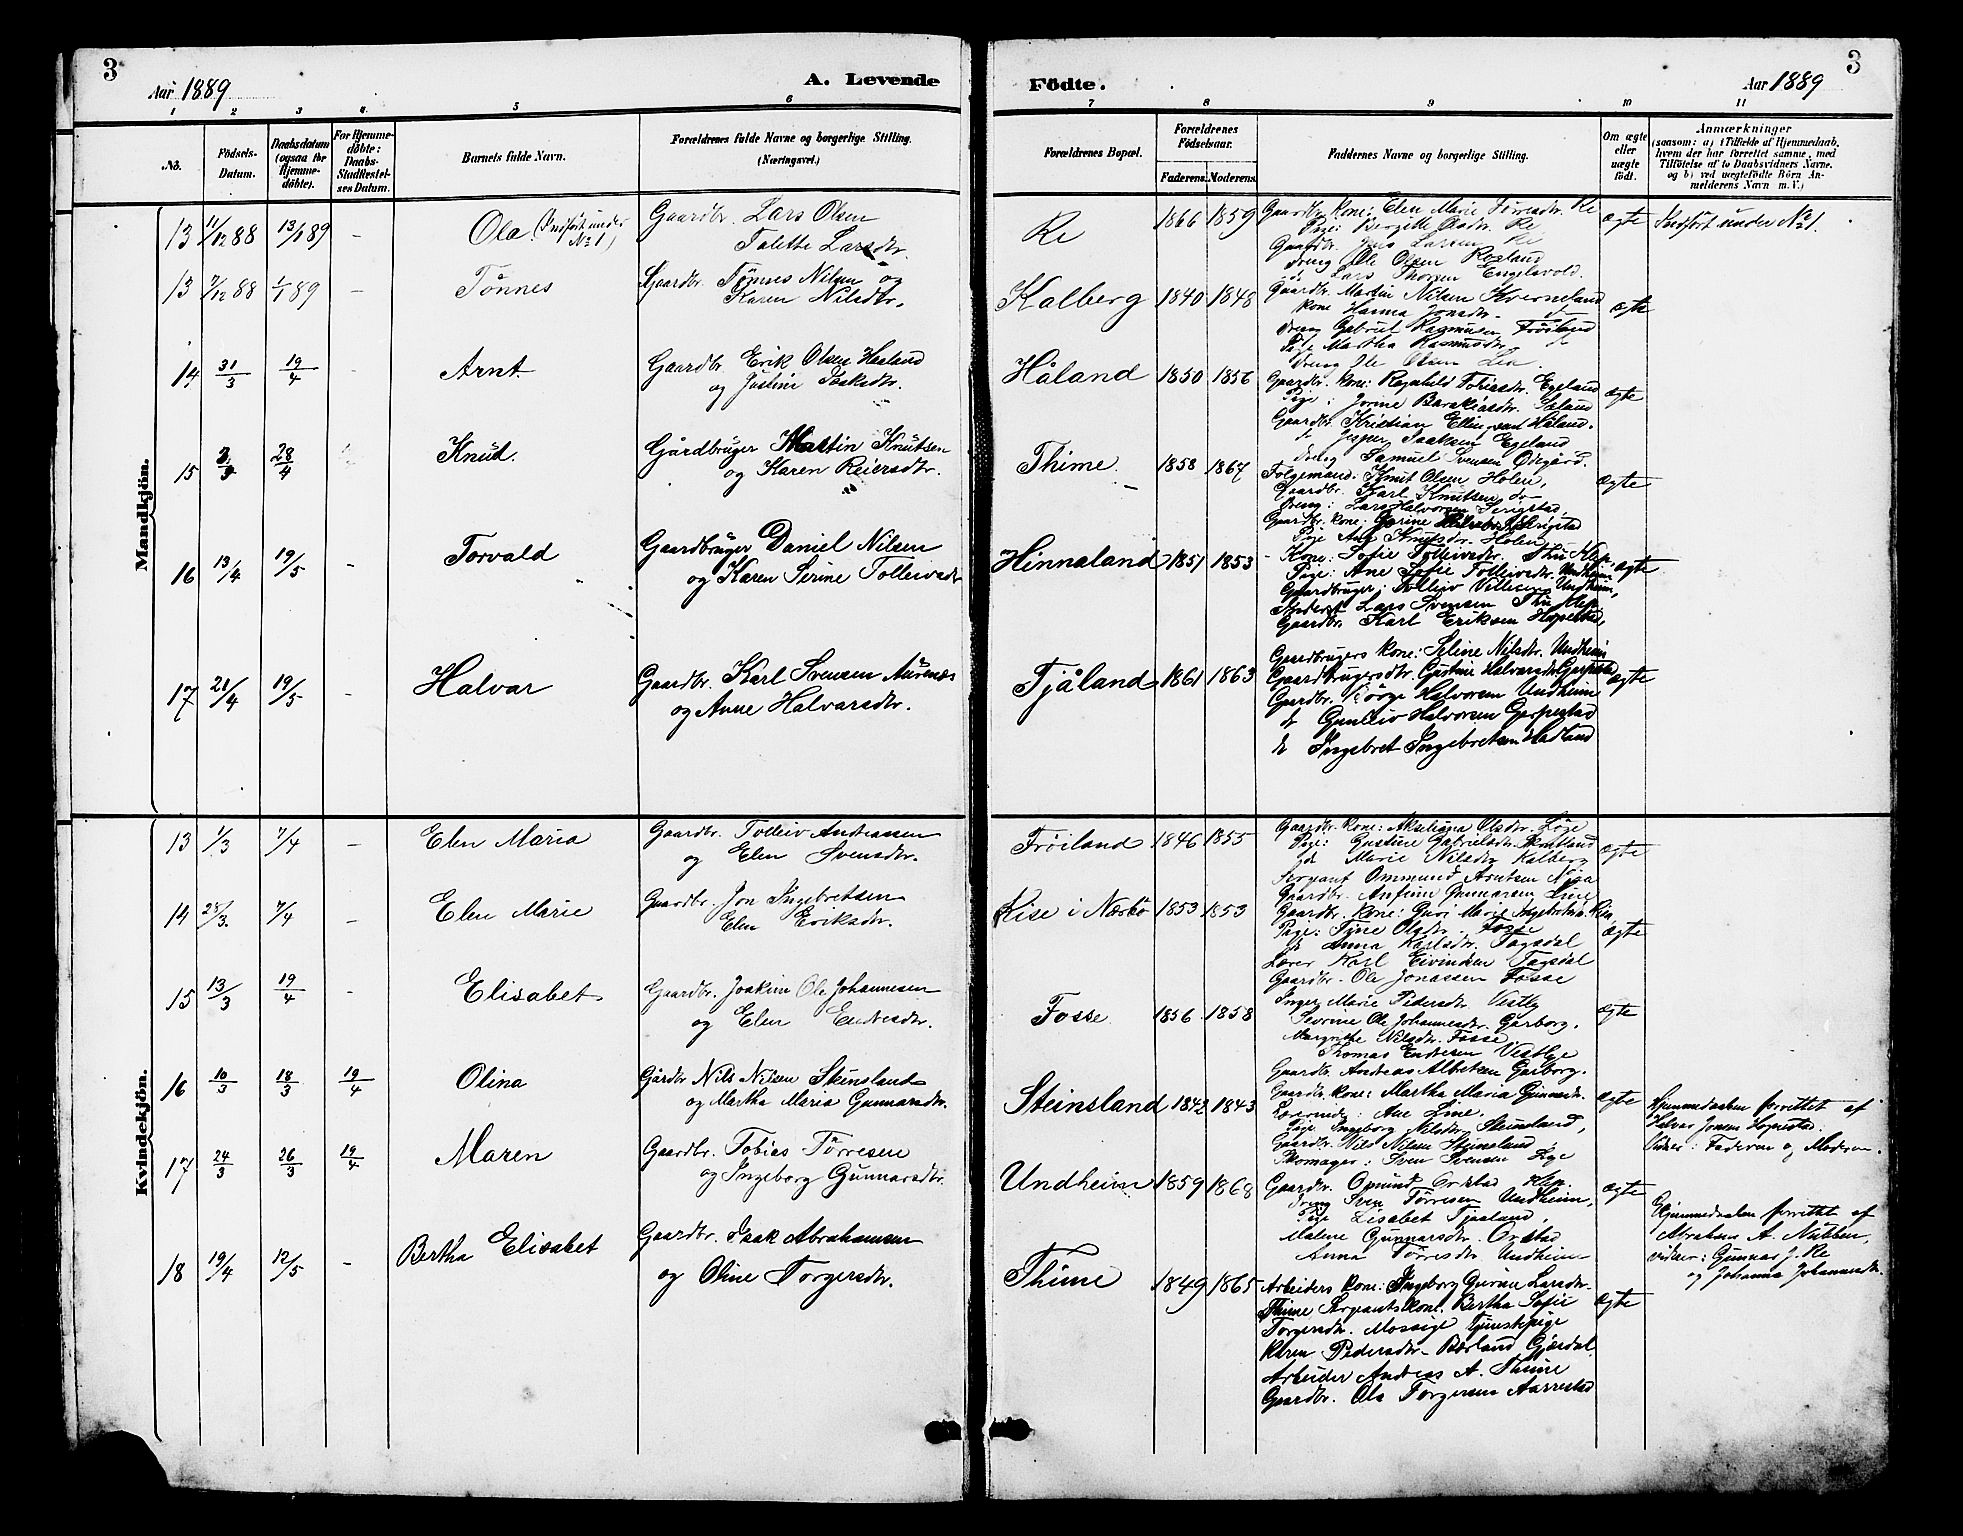 3
Aar 1889
A. Levende
Födte.
Aar 1889
3
1 2 3 4 5 6 7 8 9 10 11
No.
Födsels-
Datum.
Daabsdatum
(ogsaa for
Hjemme-
döbte).
For Hjemme-
döbte:
Daabs-
Stadfestel-
ses Datum.
Barnets fulde Navn.
Forældrenes fulde Navne og borgerlige Stilling.
(Næringsvei.)
Forældrenes Bopæl.
Forældrenes
Födselsaar.
Faderens.
Moderens.
Faddernes Navne og borgerlige Stilling.
Om ægte
eller
uægte
födt.
Anmærkninger
(saasom: a) i Tilfælde af Hjemmedaab,
hvem der har forrettet samme, med
Tilföielse af to Daabsvidners Navne,
og b) ved uægtefödte Börn An-
melderens Navn m. V.)
Mandkjön.
13 11/12 88 13/1 89 - Ola (Indført under
No 1)
Gaardbr. Lars Olsen
Talette Larsdtr.
Re 1866 1859
Gaardbr. kone: Elen Marie Tørresdtr. Re
Pige: Bergitte Olsdtr. Re
Gaardbr. Jens Larsen Re
Dreng Ole Olsen Rosland
do Lars Thorsen Engelsvold.
ægte Indført under No 1.
13 7/12 88 1/1 89 - Tönnes
Gaardbr. Tönnes Nilsen og
Karen Nilsdtr.
Kalberg 1840 1848
Gaardbr. Martin Nilsen Kverneland
Kone Hanna Jonsdtr. do
Dreng Gabriel Rasmusen Frøiland
Pige Martha Rasmusdtr. do
Dreng Ole Olsen Lia.
ægte
14 31/3 19/4 - Arnt.
Gaardbr. Erik Olsen Haaland
og Justine Isaksdtr.
Håland 1850 1856
Gaardbr. kone: Ragnhild Tobiasdtr. Egeland
Pige: Jorine Barakiasdtr. Sæland
Gaardbr. Kristian Håland.
do Jesper Isaksen Egeland
Dreng Samuel Svensen Ødegård.
ægte
15 28/4 Knud.
Gårdbruger Martin Knutsen
og Karen Reiersdtr.
Thime 1858 1867
Folgemand. Knut Olsen Holen,
Gaardbr. Karl Knutsen do
Dreng: Lars Halvorsen Serigstad
Gaardbr. kone: Serigstad
Pige Ane Knutsdtr. Holen
ægte
16 13/4 19/5 - Torvald
Gaardbruger Daniel Nilsen
og Karen Serine Tolleivsdtr
Hinnaland 1851 1853
Kone: Sofie Tolleivsdtr. Thu Klep.
Pige: Ane Sofie Tolleivsdtr. Undheim,
Gaardbruger: Tolleiv Undheim,
Lars Svensen Thu Klep.
Gaardbr. Karl Eriksen Hognestad,
ægte
17 21/4 19/5 - Halvar
Gaardbr. Karl Svensen Aurenæs
og Anne Halvarsdtr.
Tjåland 1861 1863
Gaardbrugers kone: Seline Nilsdtr. Undheim
Gaardbrugersdtr. Gustine Halvarsdtr. Gerpestad
Gaardbr. Børge Halvorsen Undheim
do Gunleiv Halvorsen Gerpestad
do Ingebret Ingebretsen Hadland
ægte
Kvindekjön.
13 1/3 7/4 - Elen Maria
Gaardbr. Tolleiv Andreassen
og Elen Svensdtr.
Frøiland 1846 1855
Gaardbr. kone: Akseliana Olsdtr. Løge
Pige: Gustine Gabrielsdtr. Skretland
do Marie Nilsdtr. Kalberg
Sergeant Ommund Arntsen Njaa
Gaardbr. Anfinn Gunnarsen Line
ægte
14 28/3. 7/4 - Elen Marie
Gaardbr. Jon Ingebretsen
Elen Eriksdtr.
Lise i Nærbø 1853 1853
Gaardbr. kone: Guri Marie Ingebretsen.
Pige: Tyne Olsdtr. Fosse
do Anna Karlsdtr. Tagsdal
Lærer Karl Eivindsen Tagsdal
Gaardbr. Ole Jonassen Fosse
ægte
15 13/3 19/4 - Elisabet
Gaardbr. Joakim Ole Johannesen
og Elen Endresdtr.
Fosse 1856 1858
Inger Marie Pedersdtr Vestly
Sevrine Ole Johannesdtr. Garborg.
Margrethe Nilsdtr. Fosse
Thomas Endresen Vestlye
Gaardbr. Andreas Albetsen Garborg.
ægte
16 10/3 18/3 19/4 Olina
Gårdbr Nils Nilsen Skinsland
og Martha Maria Gunnarsdtr.
Steinsland 1842 1843
Gaardbr. kone: Martha Maria Gunnarsdtr.
Ane Line.
Pige Ingeborg Nilsdtr. Steinsland,
Gaardbr. Nils Nilsen Steinsland
Skomager: Sven Svensen Lye
ægte
Hjemmedaaben forrettet af
Halvar Jonsen Hognestad.
Vidner: Faderen og Moderen.
17 24/3 26/3 19/4 Maren
Gaardbr. Tobias Tørresen
og Ingeborg Gunnarsdtr.
Undheim 1859 1868
Gaardbr. Omund Orstad Klep.
Dreng Sven Tørresen Undheim,
Pige Lisabet Tjaaland,
Malene Gunnarsdtr. Orstad
Anna Tørresdtr Undheim
ægte
Hjemmedaaben forrettet af
Abraham A. Nubben,
vidner: Gunnar J. Re
og Johanna Johannesdtr.
18 19/4 12/5 - Bertha Elisabet
Gaardbr. Isak Abrahamsen
og Oline Torgersdtr.
Thime 1849 1865
Arbeiders kone: Ingeborg Gurine Larsdtr.
Thime Sergeants kone. Bertha Sofie
Torgersdtr. Mossige Tjenestepige
Karen Pedersdtr. Bærland Gjæsdal.
Arbeider Andreas A. Thime
Gaardbr. Ola Torgersen Aarrestad
ægte